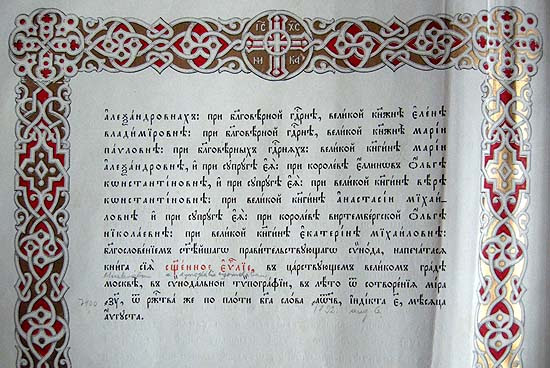 ІС ХС
НИ КА
а҆леѯа́ндровнахъ: при бл҃говѣ́рной гдⷭ҇рнѣ, вели́кой кн҃жнѣ̀ є҆ле́нѣ
влади́мїровнѣ: при бл҃говѣ́рной гдⷭ҇рнѣ, вели́кой кн҃жнѣ̀ марі́и
па́ѵловнѣ: при бл҃говѣ́рныхъ гдⷭ҇рнѧхъ: вели́кой кн҃ги́нѣ марі́и
а҆леѯа́ндровнѣ, и҆ при сꙋпрꙋ́гѣ є҆ѧ̀: при короле́вѣ є҆́ллинѡвъ ѻ҆́льгѣ
кѡнстанті́новнѣ, и҆ при сꙋпрꙋ́гѣ є҆ѧ̀: при вели́кой кн҃ги́нѣ вѣ́рѣ
кѡнстанті́новнѣ: при вели́кой кн҃ги́нѣ а҆настасі́и мїха́и-
ловнѣ и҆ при сꙋпрꙋ́гѣ є҆ѧ̀: при короле́вѣ виртембе́ргской ѻ҆́льгѣ
нїкола́евнѣ: при вели́кой кн҃ги́нѣ є҆катері́нѣ мїха́йловнѣ:
бл҃гослове́нїемъ ст҃ѣ́йшагѡ прави́тельствꙋющагѡ сѷно́да, напеча́тасѧ
кни́га сїѧ̀ сщ҃е́нное є҆ѵⷢ҇лїе, въ ца́рствꙋющемъ вели́комъ гра́дѣ
москвѣ̀, въ сѷнода́льной тѷпогра́фїи, въ лѣ́то ѿ сотворе́нїѧ мі́ра
7400 ҂зу҃, ѿ ржⷭ҇тва̀ же по пло́ти бг҃а сло́ва ҂аѡч҃в, і҆ндї́кта є҃, мѣ́сѧца
а҆́ѵгꙋста.